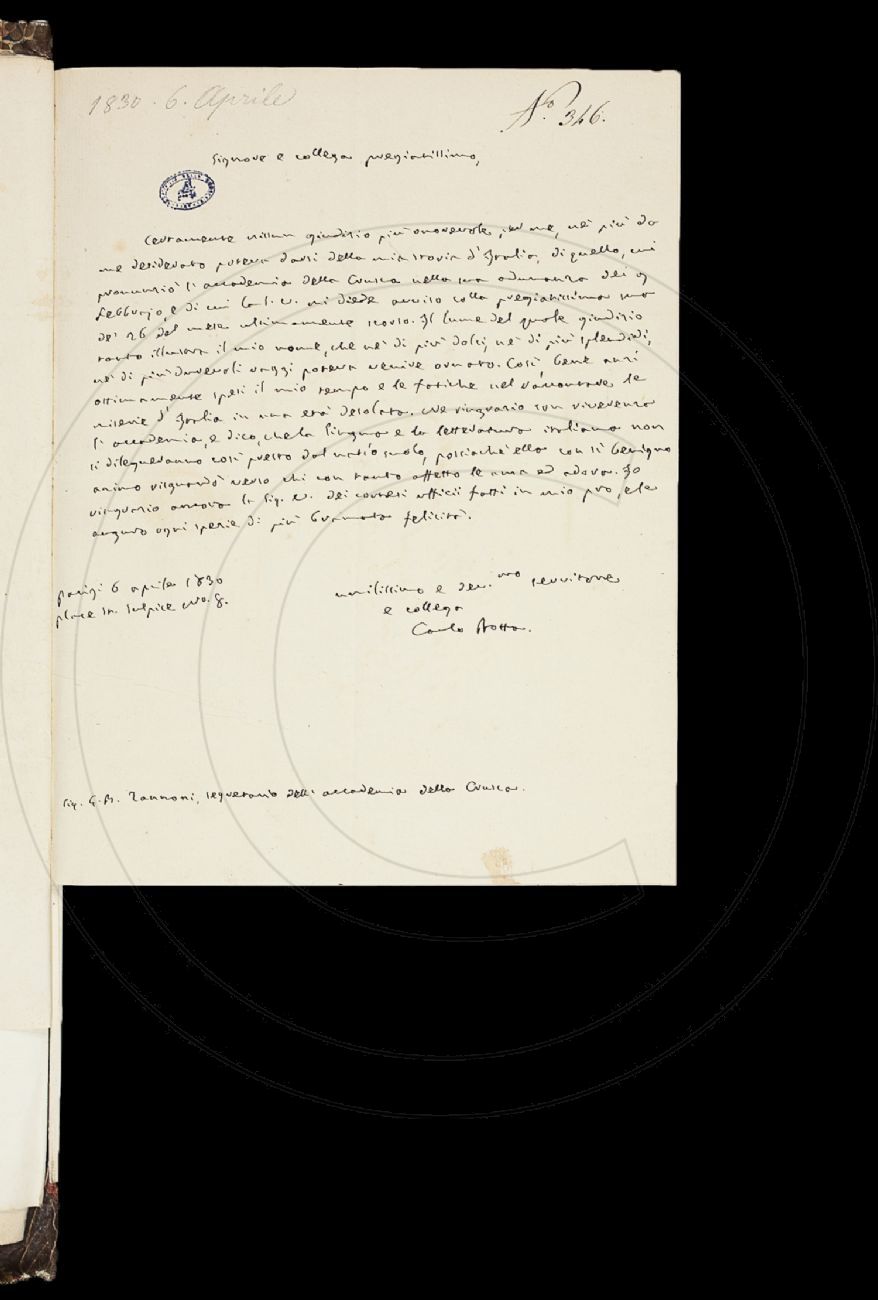 1830. 6. Aprile
N.o 346.
Signore e collega pregiatissimo,
Certamente nissun giudizio più onorevole per me, nè più da
me desiderato poteva darsi della mia storia d'Italia, di quello, cui
pronunziò l'accademia della Crusca nella sua adunanza dei 9
febbrajo, e di cui la S. V. mi diede avviso colla pregiatissima sua
de' 26 del mese ultimamente scorso. Il lume del quale giudizio
tanto illustra il mio nome, che nè di più dolci, nè di più splendidi,
nè di più durevoli raggi poteva venire ornato. Così bene anzi
ottimamente spesi il mio tempo e le fatiche nel raccontare le
miserie d'Italia in una età desolata. Ne ringrazio con riverenza
l'accademia, e dico, che la lingua e la letteratura italiana non
si dilegueranno così presto dal natío suolo, posciachè ella con sì benigno
animo risguardò verso chi con tanto affetto le ama ed adora. Io
ringrazio ancora la Sig. V. dei cortesi ufficii fatti in mio pro, e le
auguro ogni spezie di più bramata felicità.
parigi 6 aprile 1830
place St. Sulpice No. 8.
umilissimo e dev.mo servitore
e collega
Carlo Botta.
Sig. G. B. Zannoni, segretario dell'accademia della Crusca.